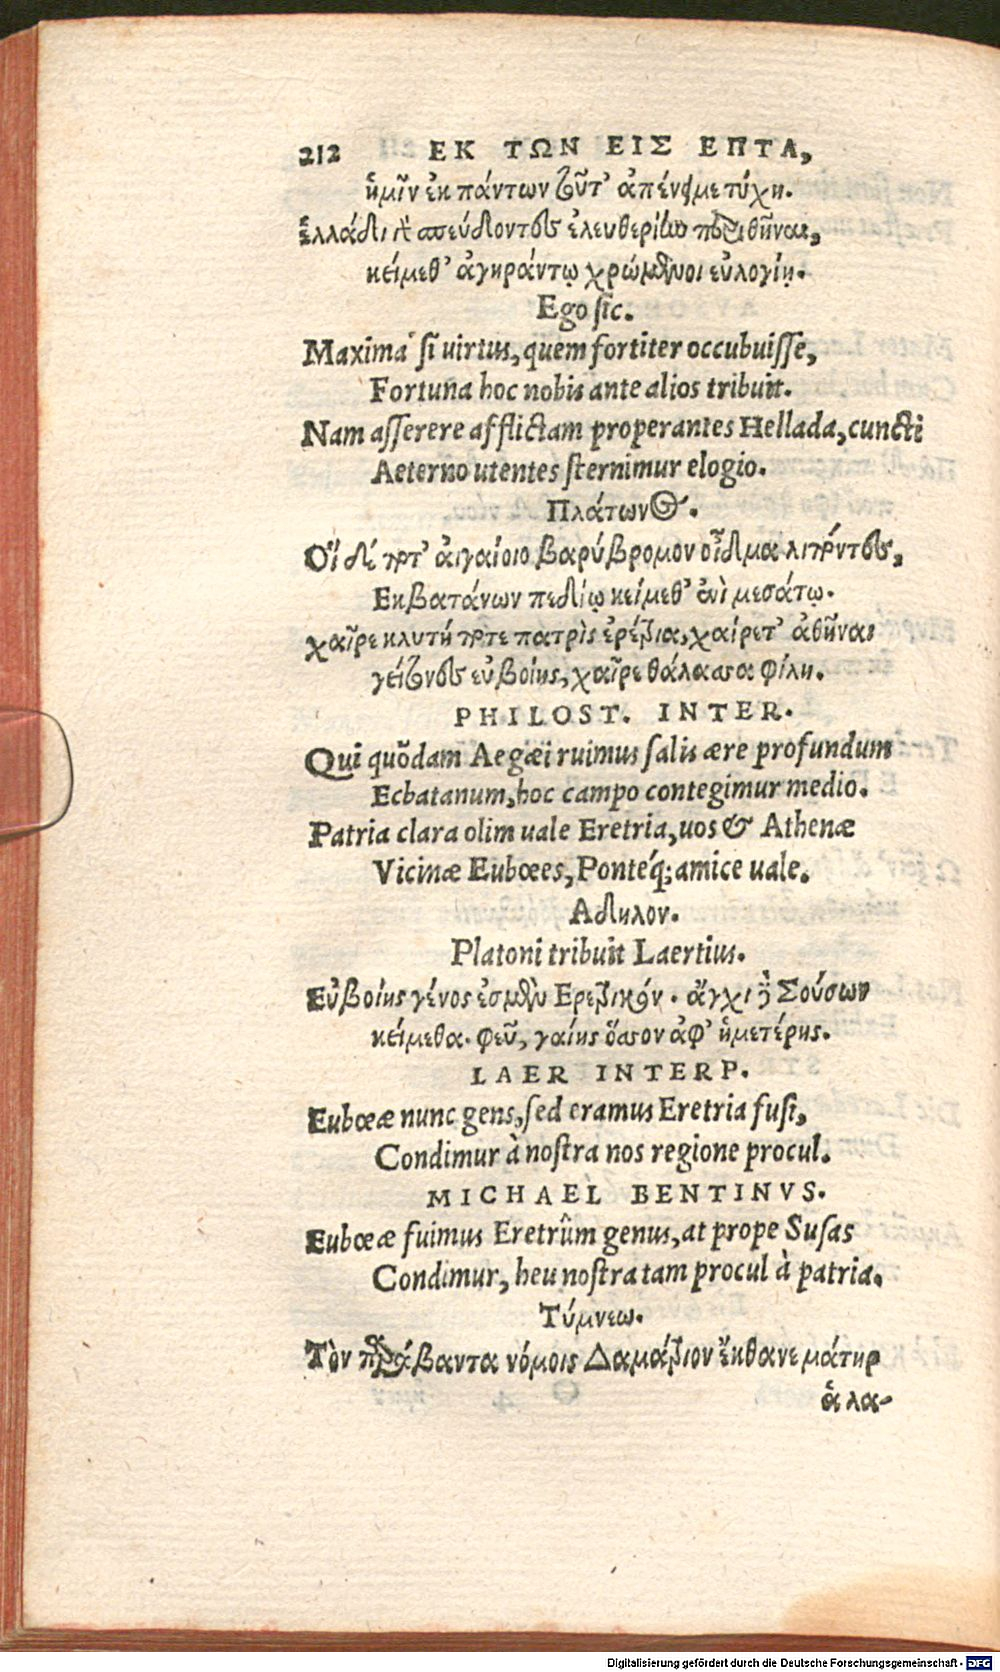 212 ΕΚ ΤΩΝ ΕΙΣ ΕΠΤΑ,
ἡμῖν ἐκ πάντων τοῦτ' ἀπένειμε τύχη.
ἑλλάδι γὸ σπεύδοντες ἐλευθερίην περιθῆναι,
κείμεθ' ἀγηράντῳ χρώμενοι εὐλογίῃ.
Ego sic.
Maxima si uirtus, quem fortiter occubuisse,
Fortuna hoc nobis ante alios tribuit.
Nam asserere afflictam properantes Hellada, cuncti
Aeterno utentes sternimur elogio.
Πλάτωνος.
Οἵ δέ ποτ' αἰγαίοιο βαρύβρομον οἶδμα λιπόντες,
Εκβατάνων πεδίῳ κείμεθ' ἐνὶ μεσάτῳ.
χαῖρε κλυτή ποτε πατρὶς ἐρέτρια, χαίρετ' ἀθῆναι
γείτονες εὐβοίης, χαῖρε θάλασσα φίλη.
PHILOST. INTER.
Qui quōdam Aegæi ruimus salis ære profundum
Ecbatanum, hoc campo contegimur medio.
Patria clara olim uale Eretria, uos & Athenæ
Vicinæ Eubœes, Ponteq́; amice uale.
Αδηλον.
Platoni tribuit Laertius.
Εὐβοίης γένος ἐσμὲν Ερετρικόν. ἄγχι δὲ Σούσων
κείμεθα. φεῦ, γαίης ὅσσον ἀφ' ἡμετέρης.
LAER INTERP.
Eubœæ nunc gens, sed eramus Eretria fusi,
Condimur à nostra nos regione procul.
MICHAEL BENTINVS.
Eubœæ fuimus Eretriûm genus, at prope Susas
Condimur, heu nostra tam procul à patria.
Τύμνεω.
Τὸν παραβάντα νόμοις Δαμάτριον ἔκθανε μάτηρ
ἁ λα-
Digitalisierung gefördert durch die Deutsche Forschungsgemeinschaft - DFG